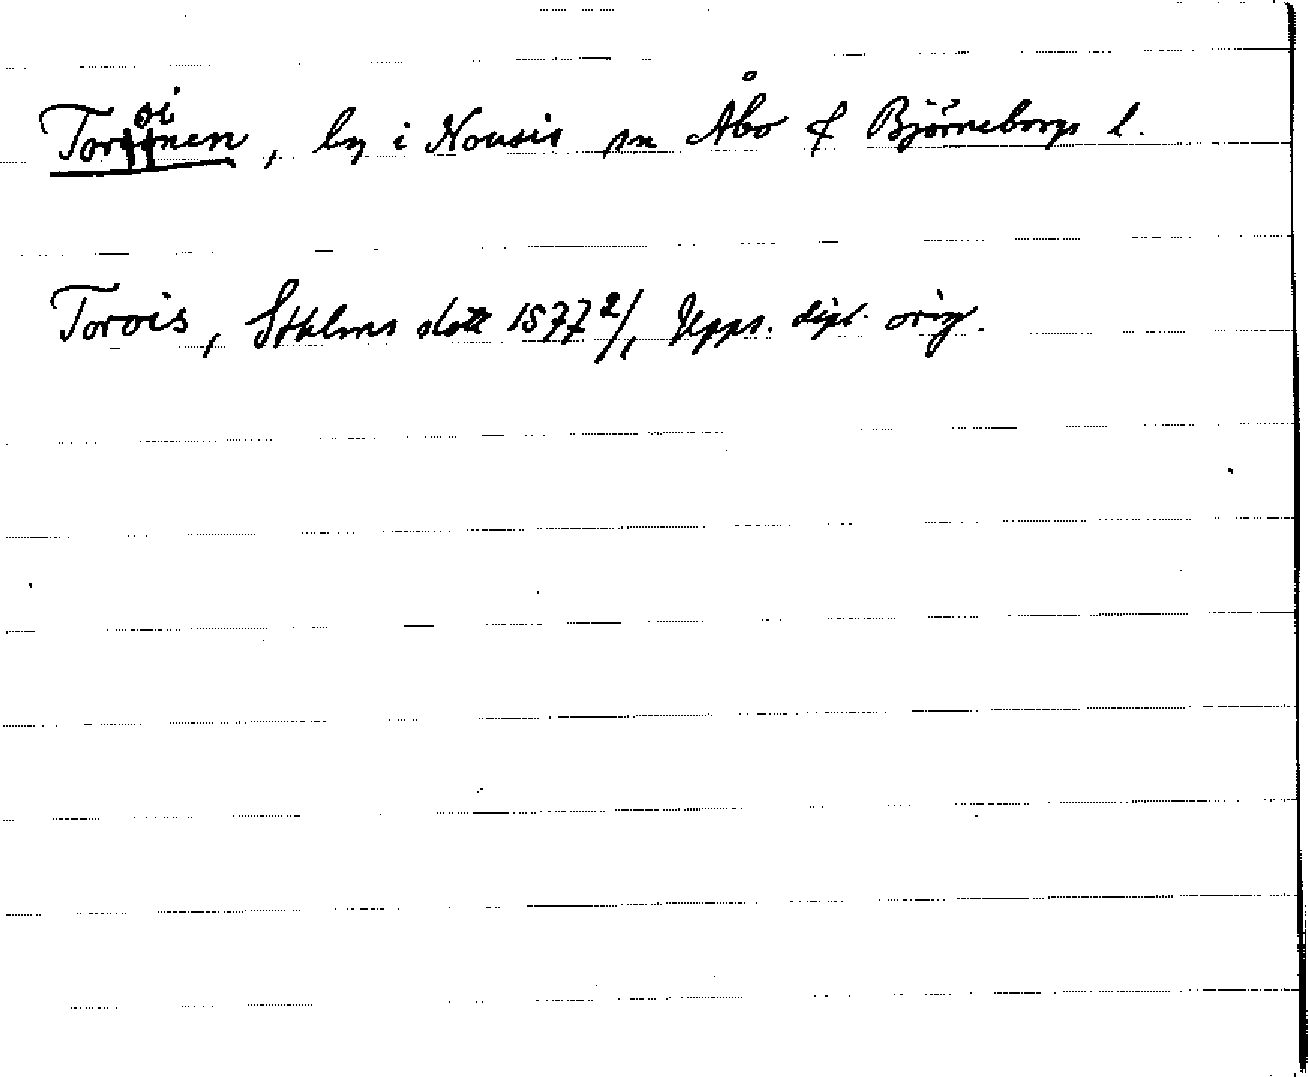 Toroinen, by i Nousis sn Åbo & Björneborgs l.
Torois, Sthlms slott 1577 2/1, Upps. dipl. orig.